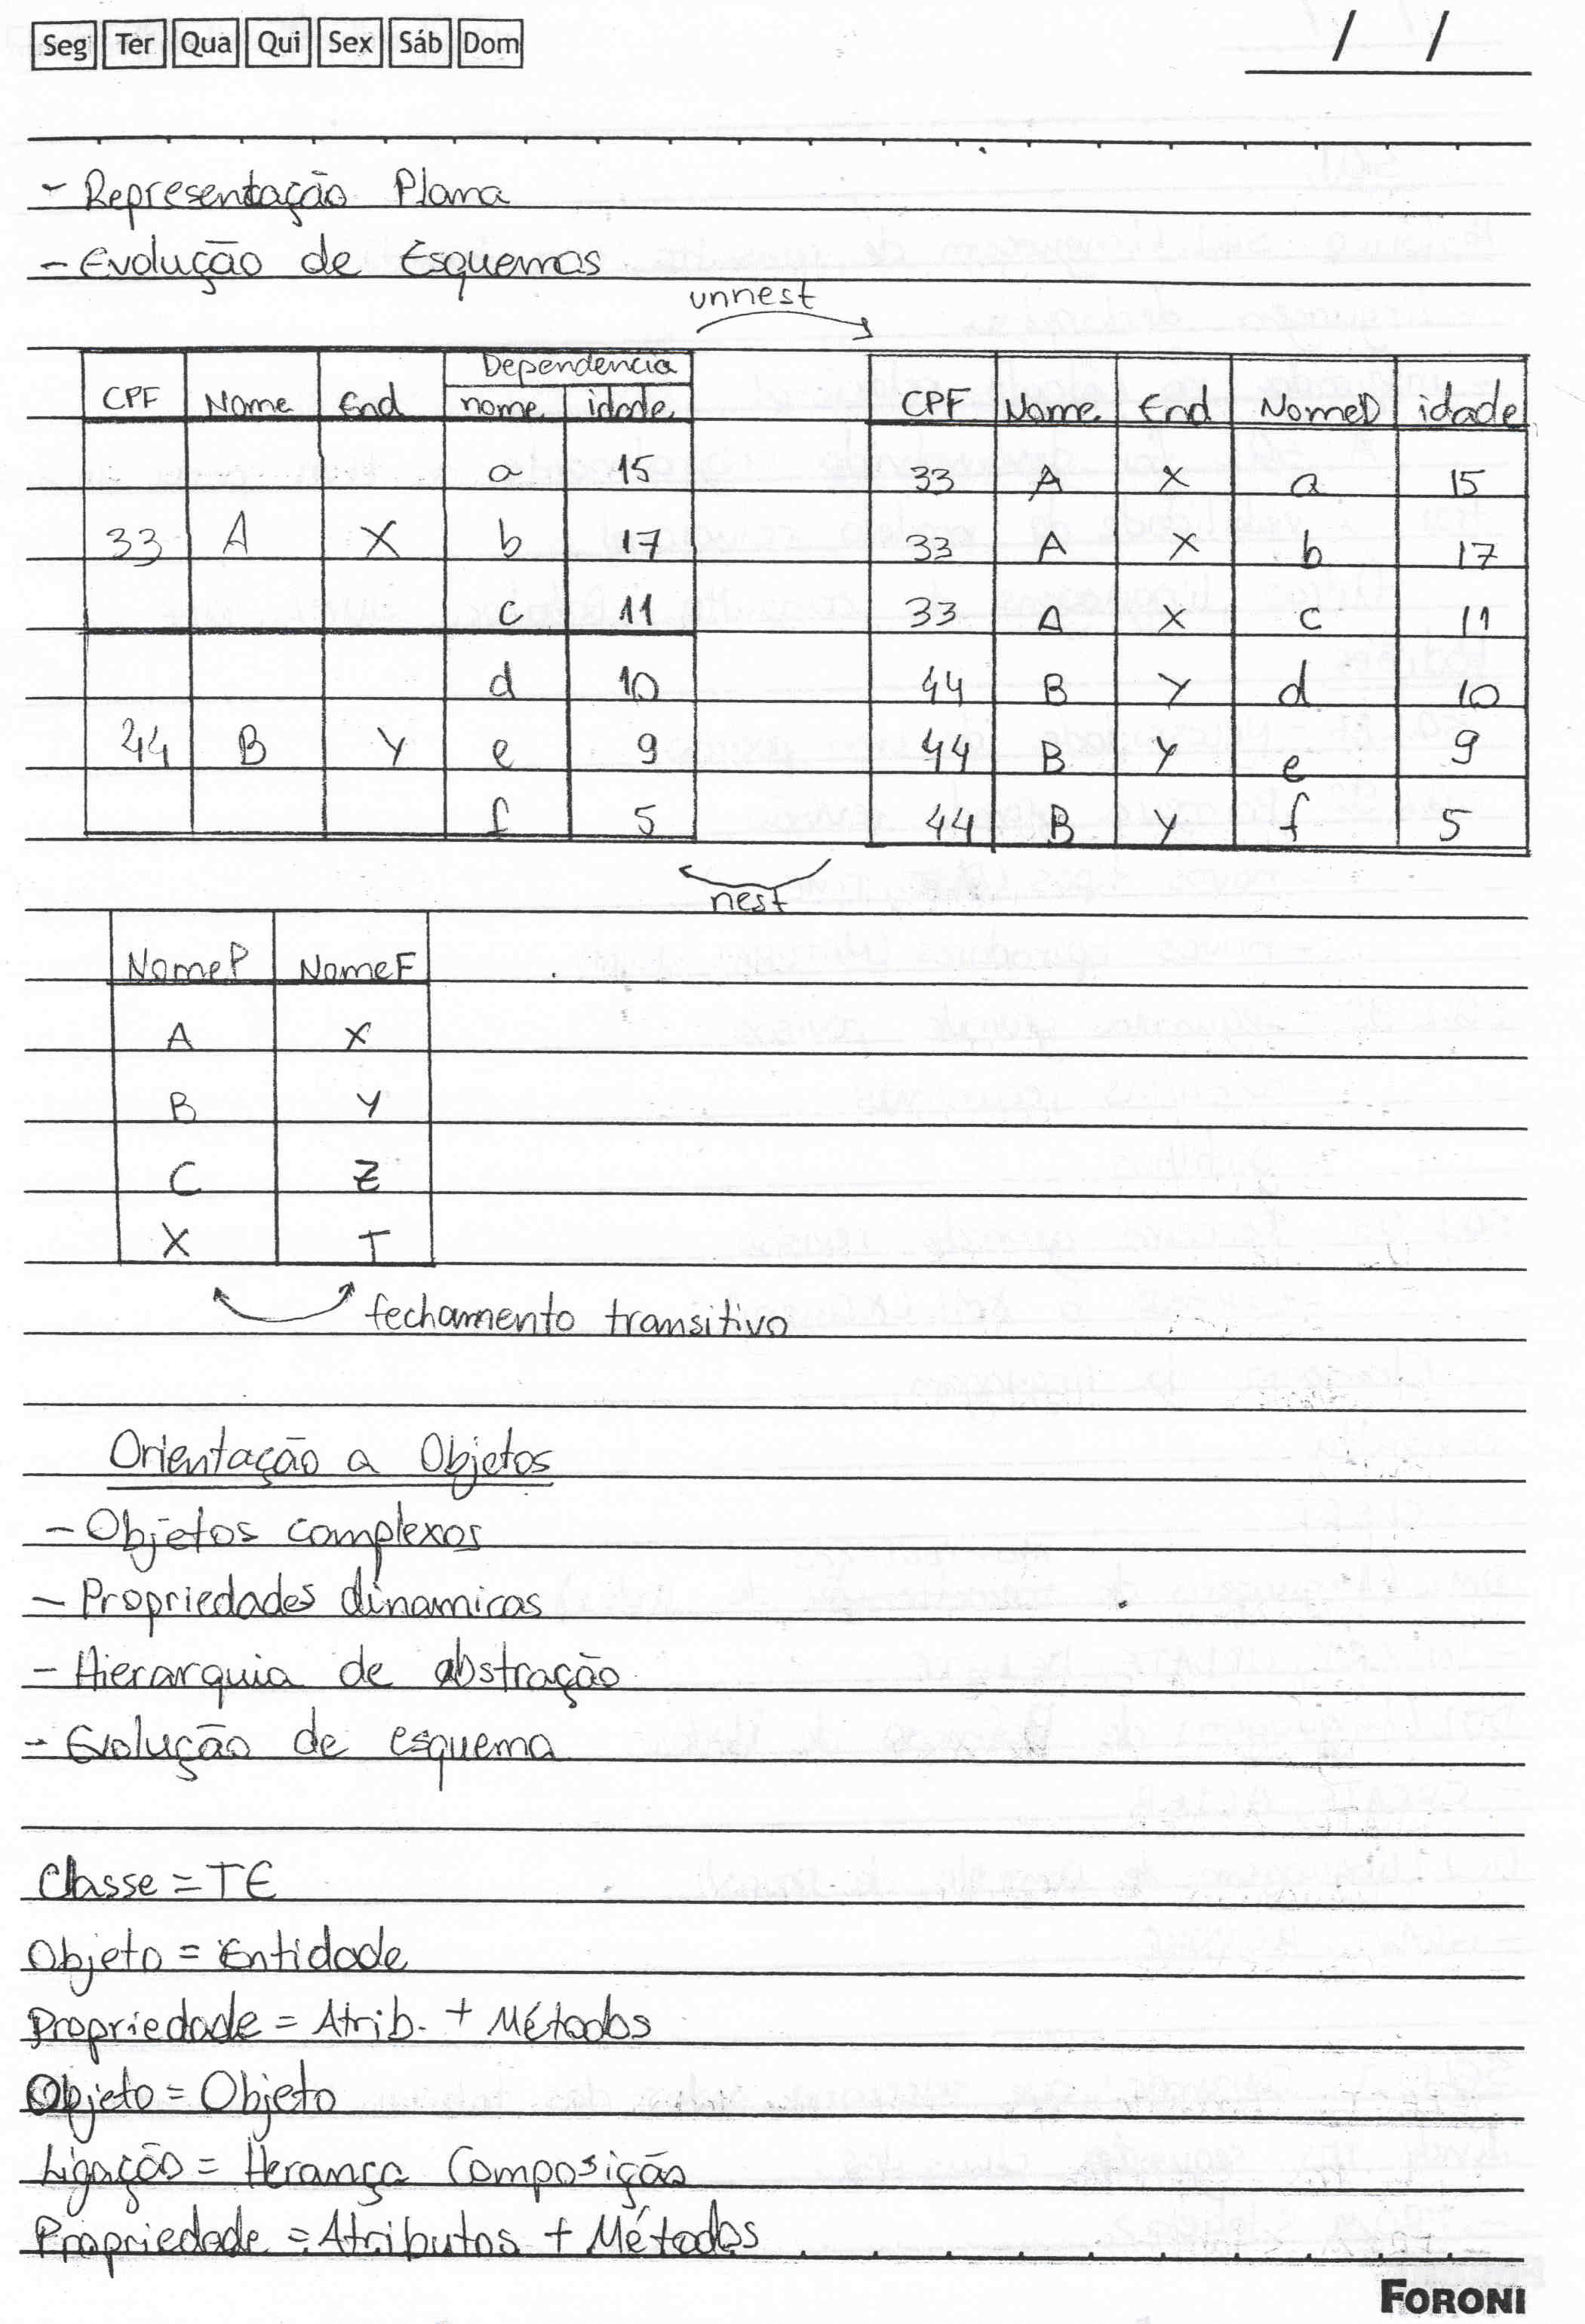 Seg Ter Qua Qui Sex Sáb Dom / /
- Representação Plana
- Evolução de Esquemas
unnest
Dependencia
CPF Nome End nome idade
a 15
33 A X b 17
c 11
d 10
44 B Y e 9
f 5
CPF Nome End NomeD idade
33 A X a 15
33 A X b 17
33 A X c 11
44 B Y d 10
44 B Y e 9
44 B Y f 5
nest
NomeP NomeF
A X
B Y
C Z
X T
fechamento transitivo
Orientação a Objetos
- Objetos complexos
- Propriedades dinamicas
- Hierarquia de abstração
- Evolução de esquema
Classe = TE
Objeto = Entidade
Propriedade = Atrib. + Métodos
Objeto = Objeto
Ligação = Herança Composição
Propriedade = Atributos + Métodos
FORONI